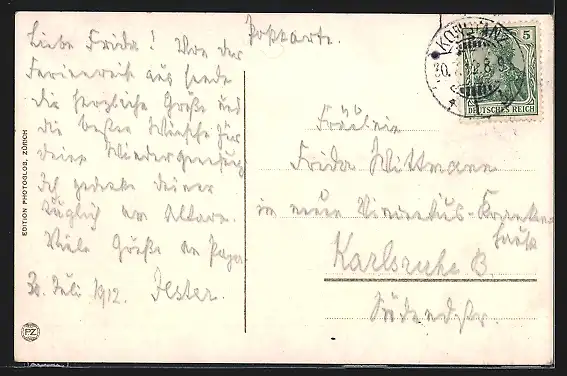 Postkarte.
Liebe Frida! Von der
Ferienreise aus sende
die herzliche Grüße und
die besten Wünsche für
deine Wiedergenesung
Ich gedenke deiner
täglich am Altare.
Viele Grüße an Papa
30. Juli 1912.
EDITION PHOTOGLOB, ZÜRICH
PZ
KONSTANZ
30.
5
DEUTSCHES REICH
Fräulein
Frida Wittmann
im neuen Vincentius-Kranken
haus
Karlsruhe B.
Südendstr.